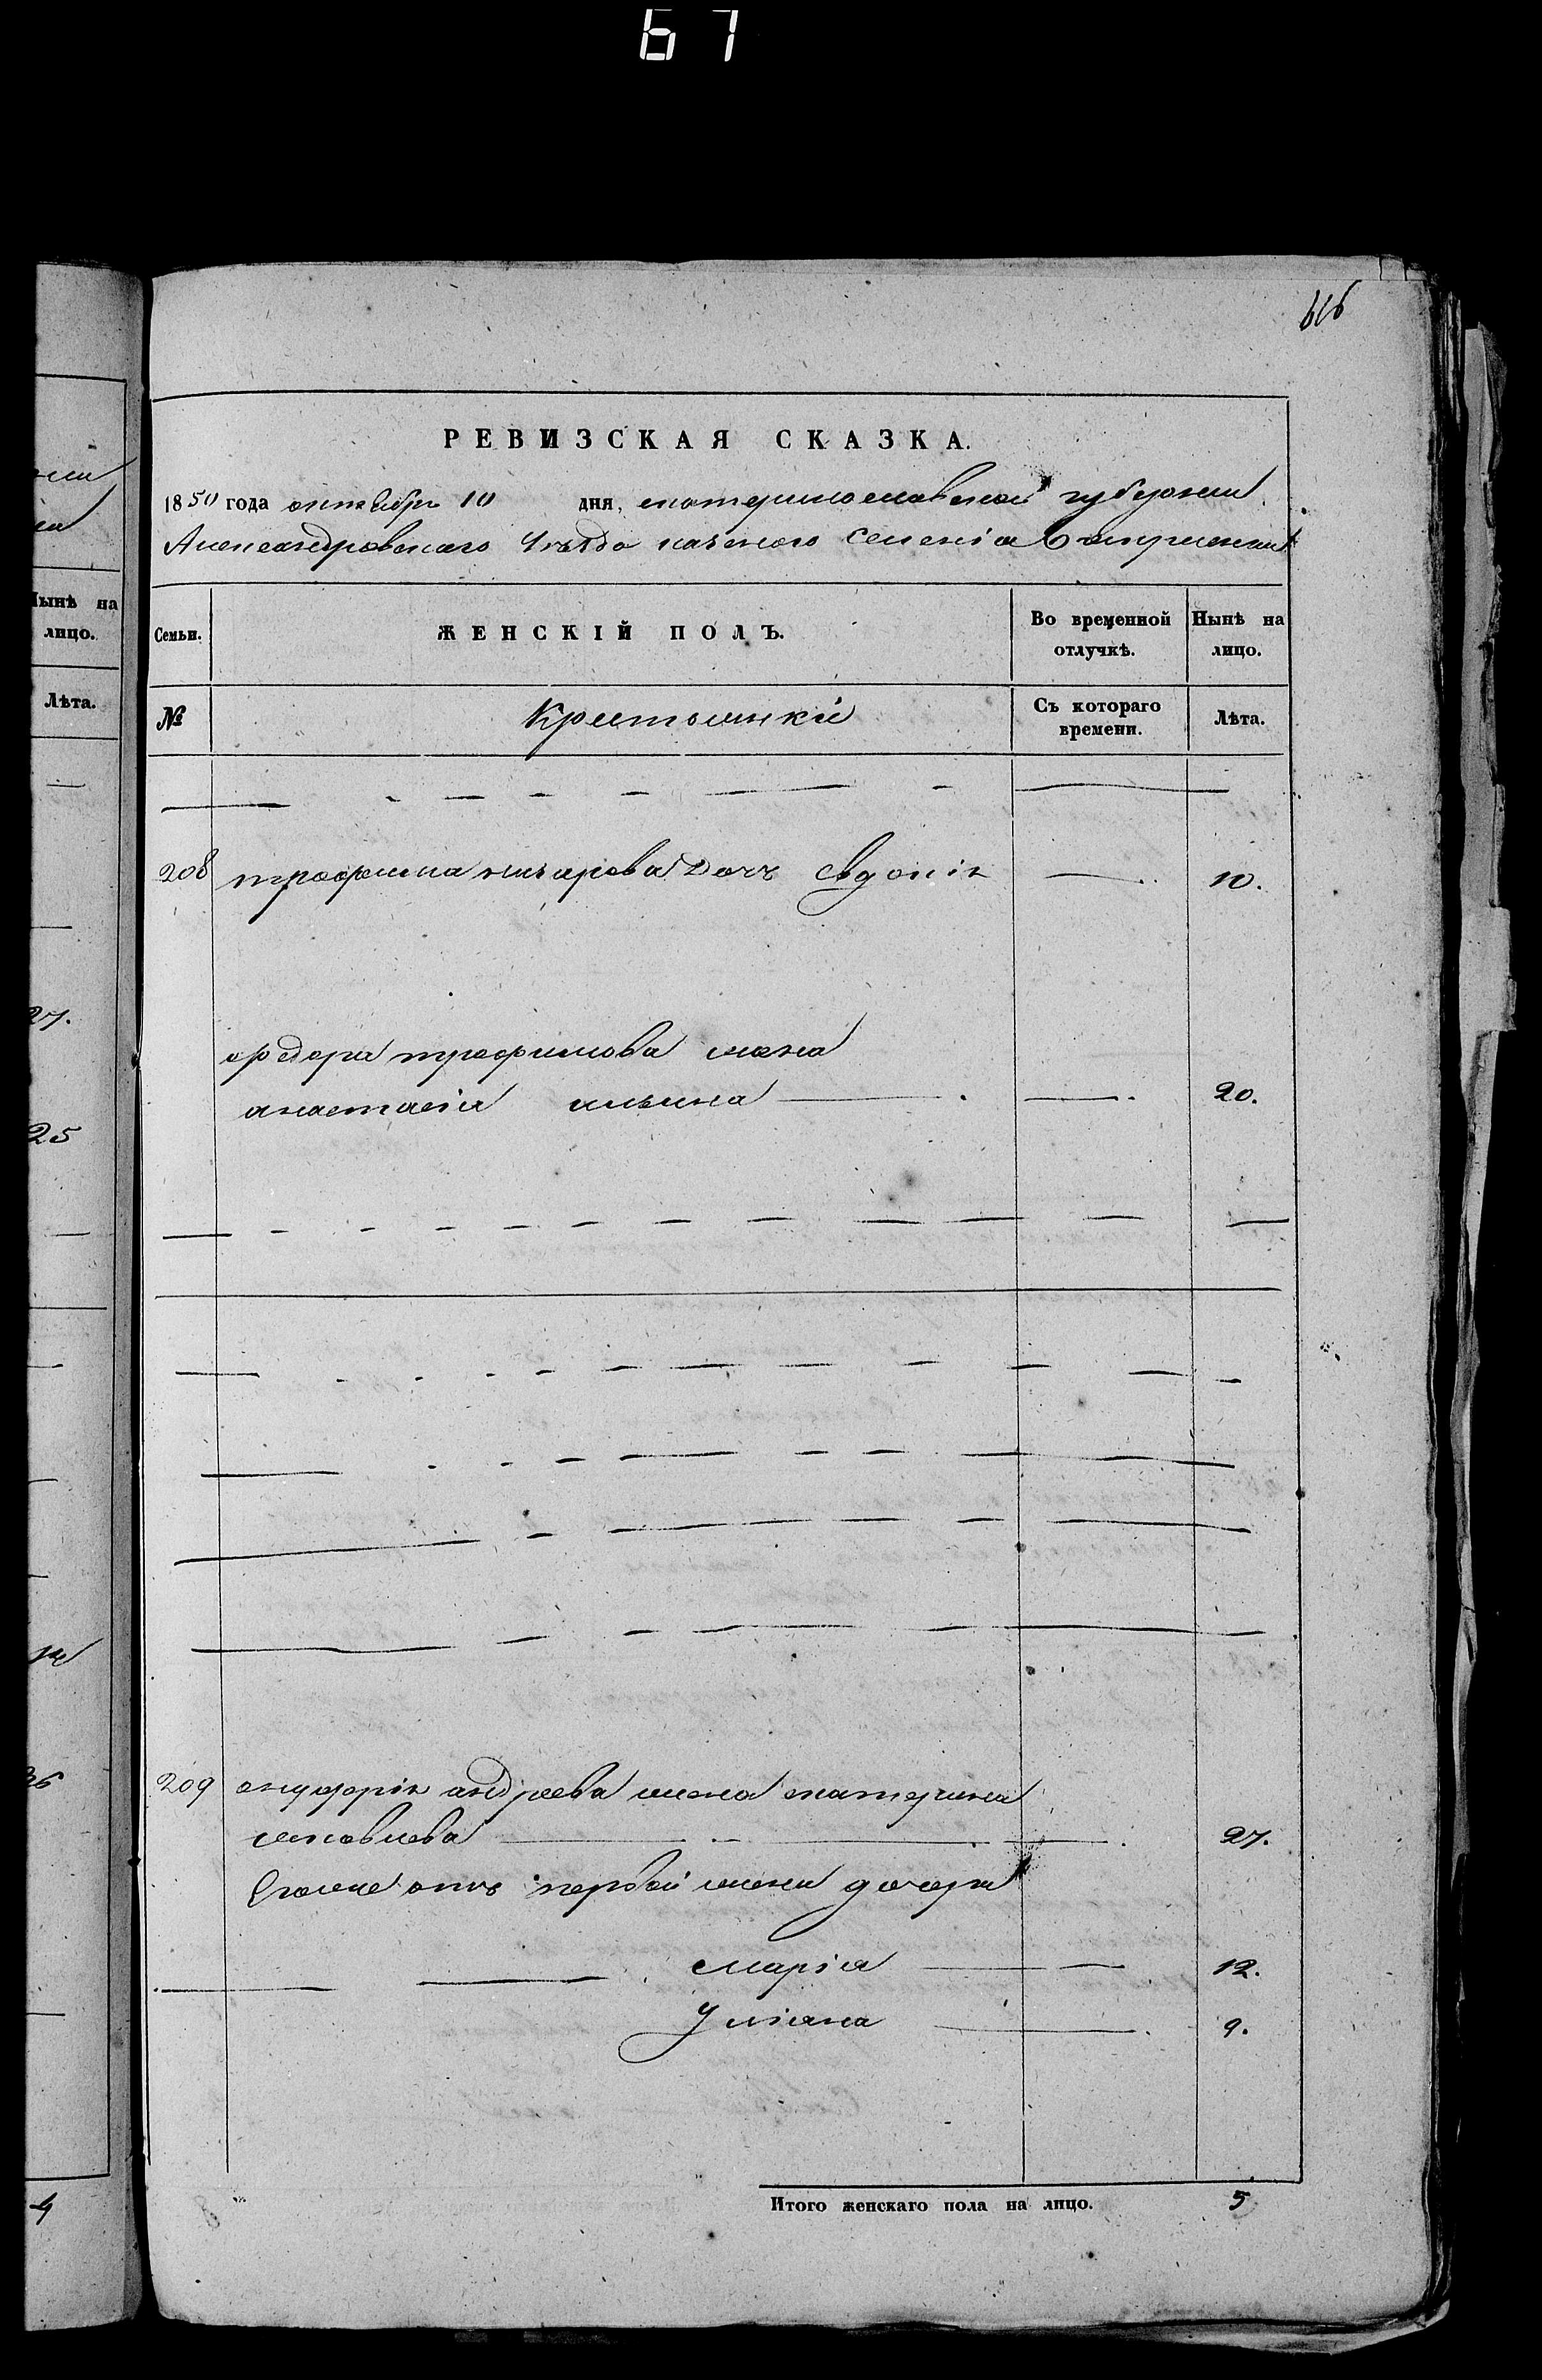 67
616
РЕВИЗСКАЯ СКАЗКА.
1850 года октября 10 дня, екатеринославской губернии
Александровскаго уезда казеного селения
Семьи. ЖЕНСКІЙ ПОЛЪ. Во временной отлучкѣ. Нынѣ на лицо.
№ Крестьянки Съ котораго времени. Лѣта.
208 трофима назарова дочь Евдокія 10.
федора трофимова жена
анастасія ильина 20.
209 онуфрія андреева жена екатерина
яковлева 27.
Егоже отъ первой жены дочери
Марія 12.
Уліана 9.
Итого женскаго пола на лицо. 5
Нынѣ на
лицо.
Лѣта.
27.
25
4